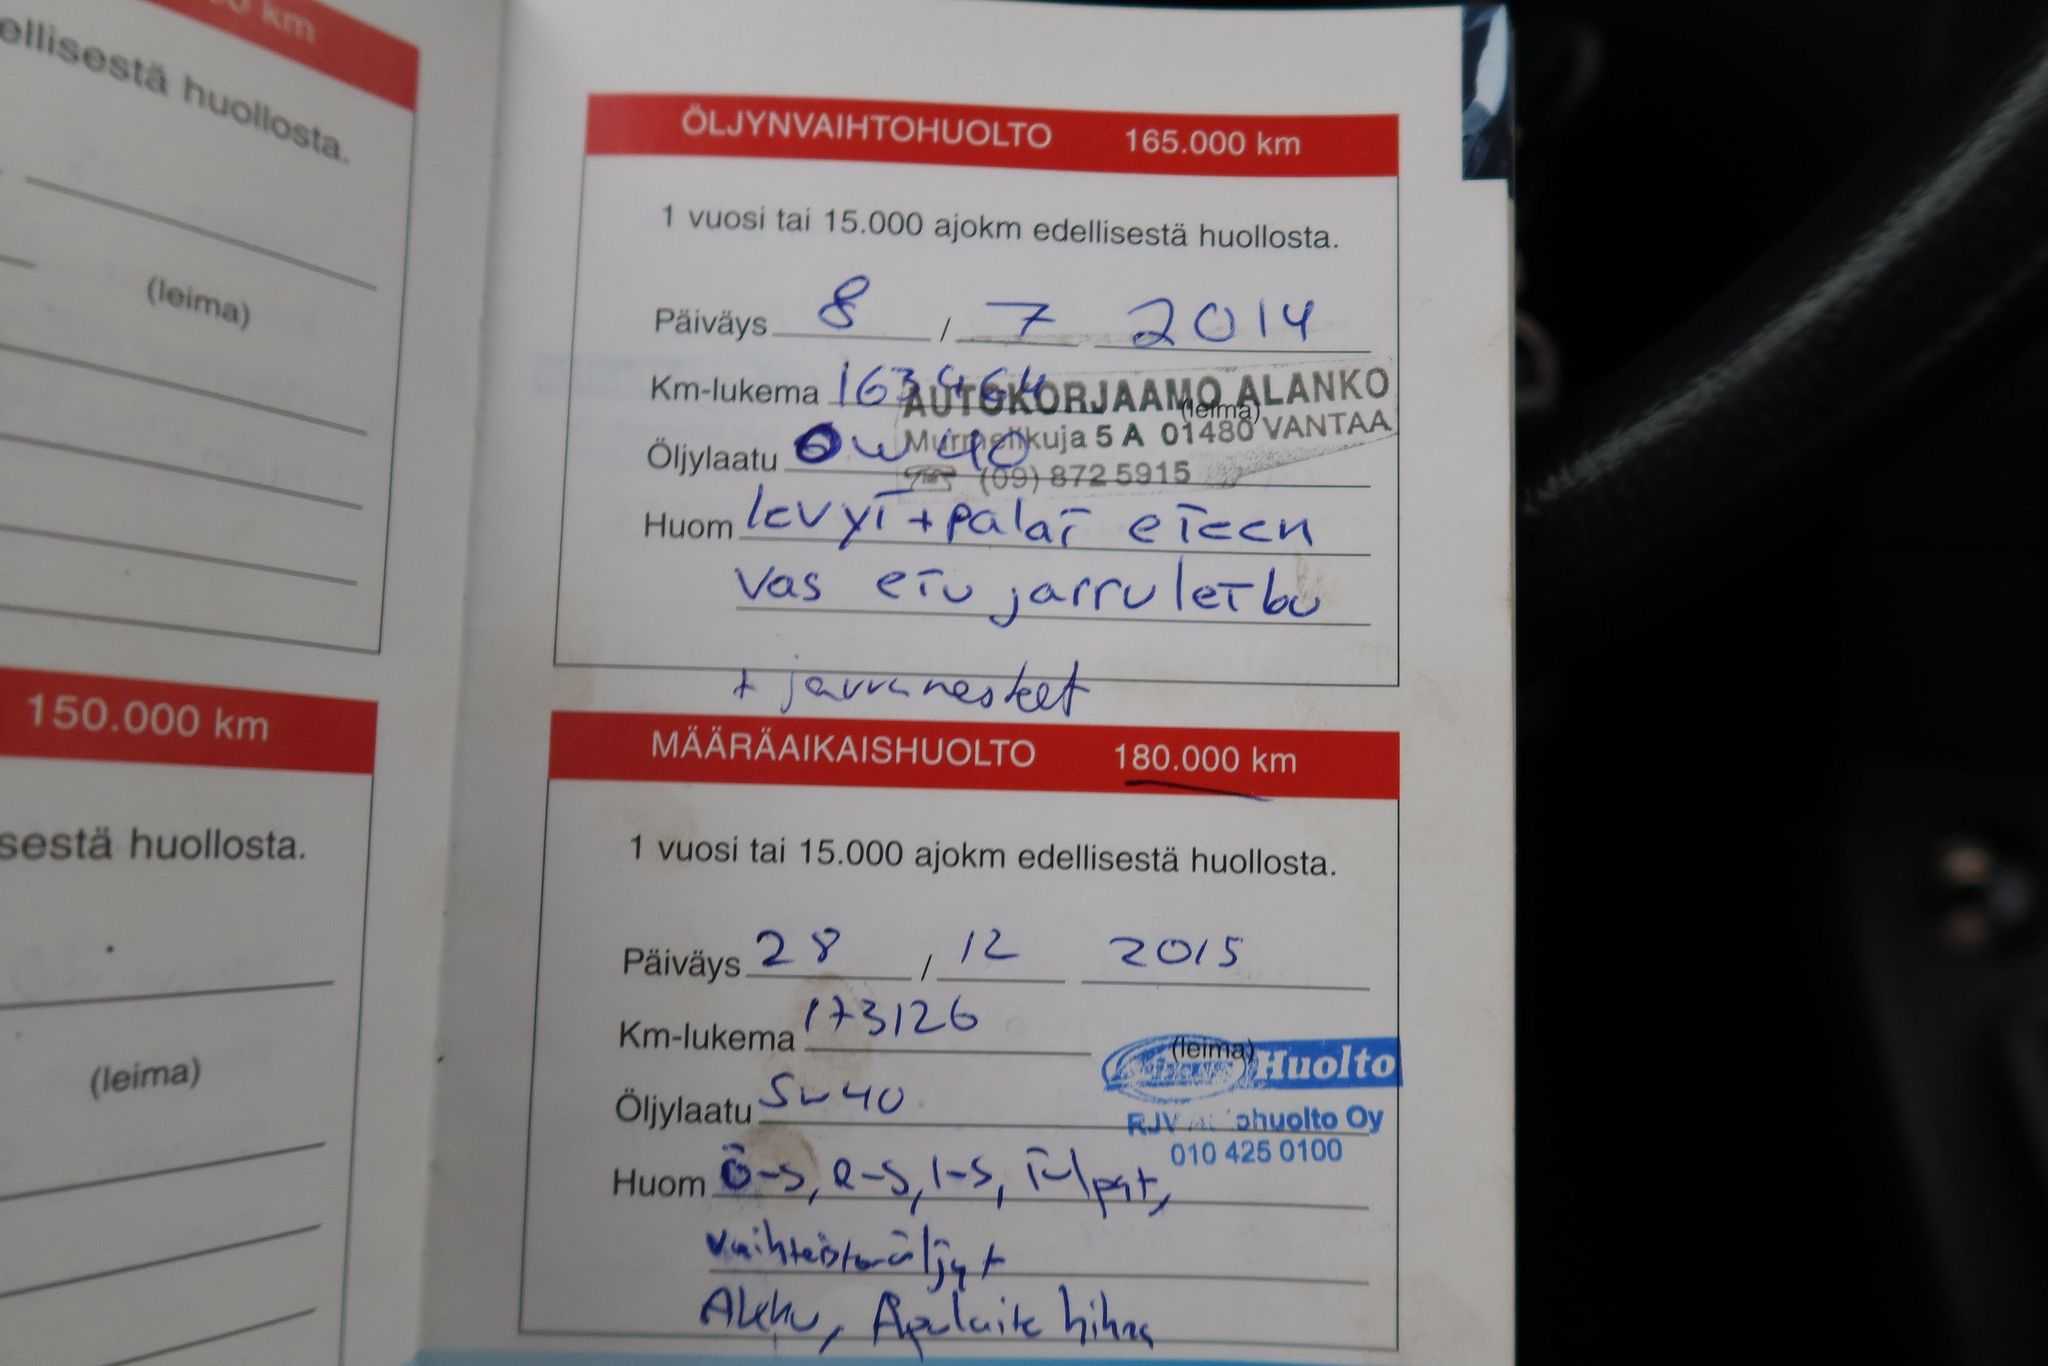 km
ellisestä huollosta.
(leima)
150.000 km
sestä huollosta.
(leima)
ÖLJYNVAIHTOHUOLTO 165.000 km
1 vuosi tai 15.000 ajokm edellisestä huollosta.
Päiväys 8 / 7 2014
Km-lukema 163464
AUTOKORJAAMO ALANKO
(leima)
Murmelikuja 5 A 01480 VANTAA
Öljylaatu 0w40
(09) 872 5915
Huom levyt + palat eteen
vas etu jarruletku
+ jarrunesteet
MÄÄRÄAIKAISHUOLTO 180.000 km
1 vuosi tai 15.000 ajokm edellisestä huollosta.
Päiväys 28 / 12 2015
Km-lukema 173126
(leima) Huolto
Öljylaatu 5w40
RJV ohuolto Oy
010 425 0100
Huom Ö-S, R-S, I-S, Tulpat,
vaihteistoöljyt
Akku, Apulaite hihna